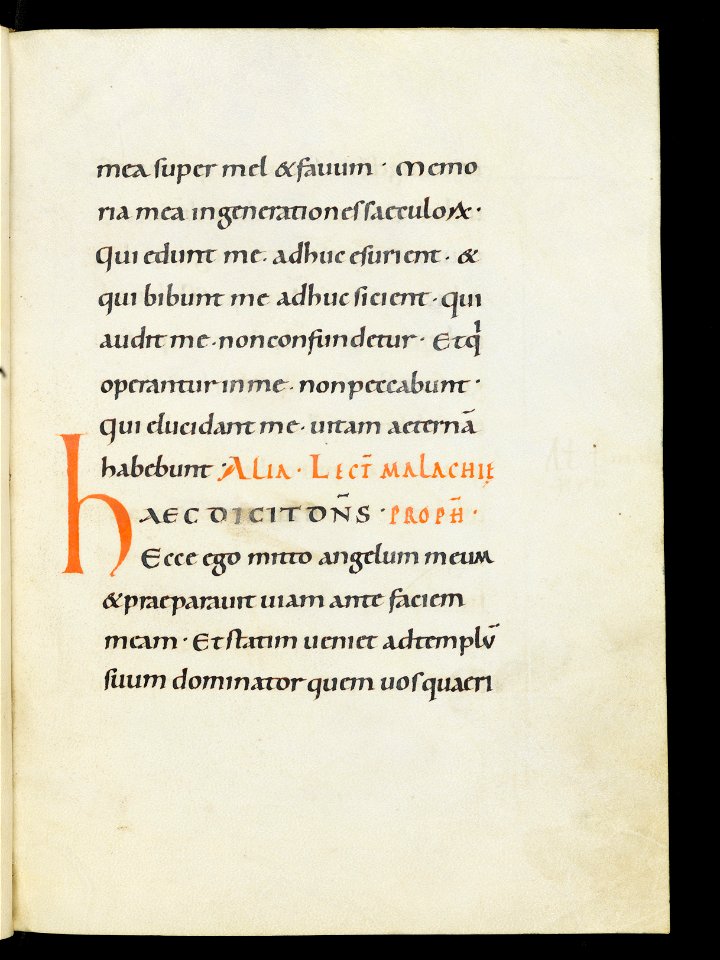 mea super mel & fauum · Memo
ria mea in generationes saeculorꝝ ·
Qui edunt me · adhuc esurient · &
qui bibunt me adhuc sicient · qui
audit me · non confundetur · Et q̇
operantur in me · non peccabunt ·
Qui elucidant me · uitam aeternā
habebunt · ALIA · LECT̄ MALACHIĘ
HAEC DICIT DN̄S · PROPH̄ ·
Ecce ego mitto angelum meum
& praeparauit uiam ante faciem
meam · Et statim ueniet ad templū
suum dominator quem uos quaeri